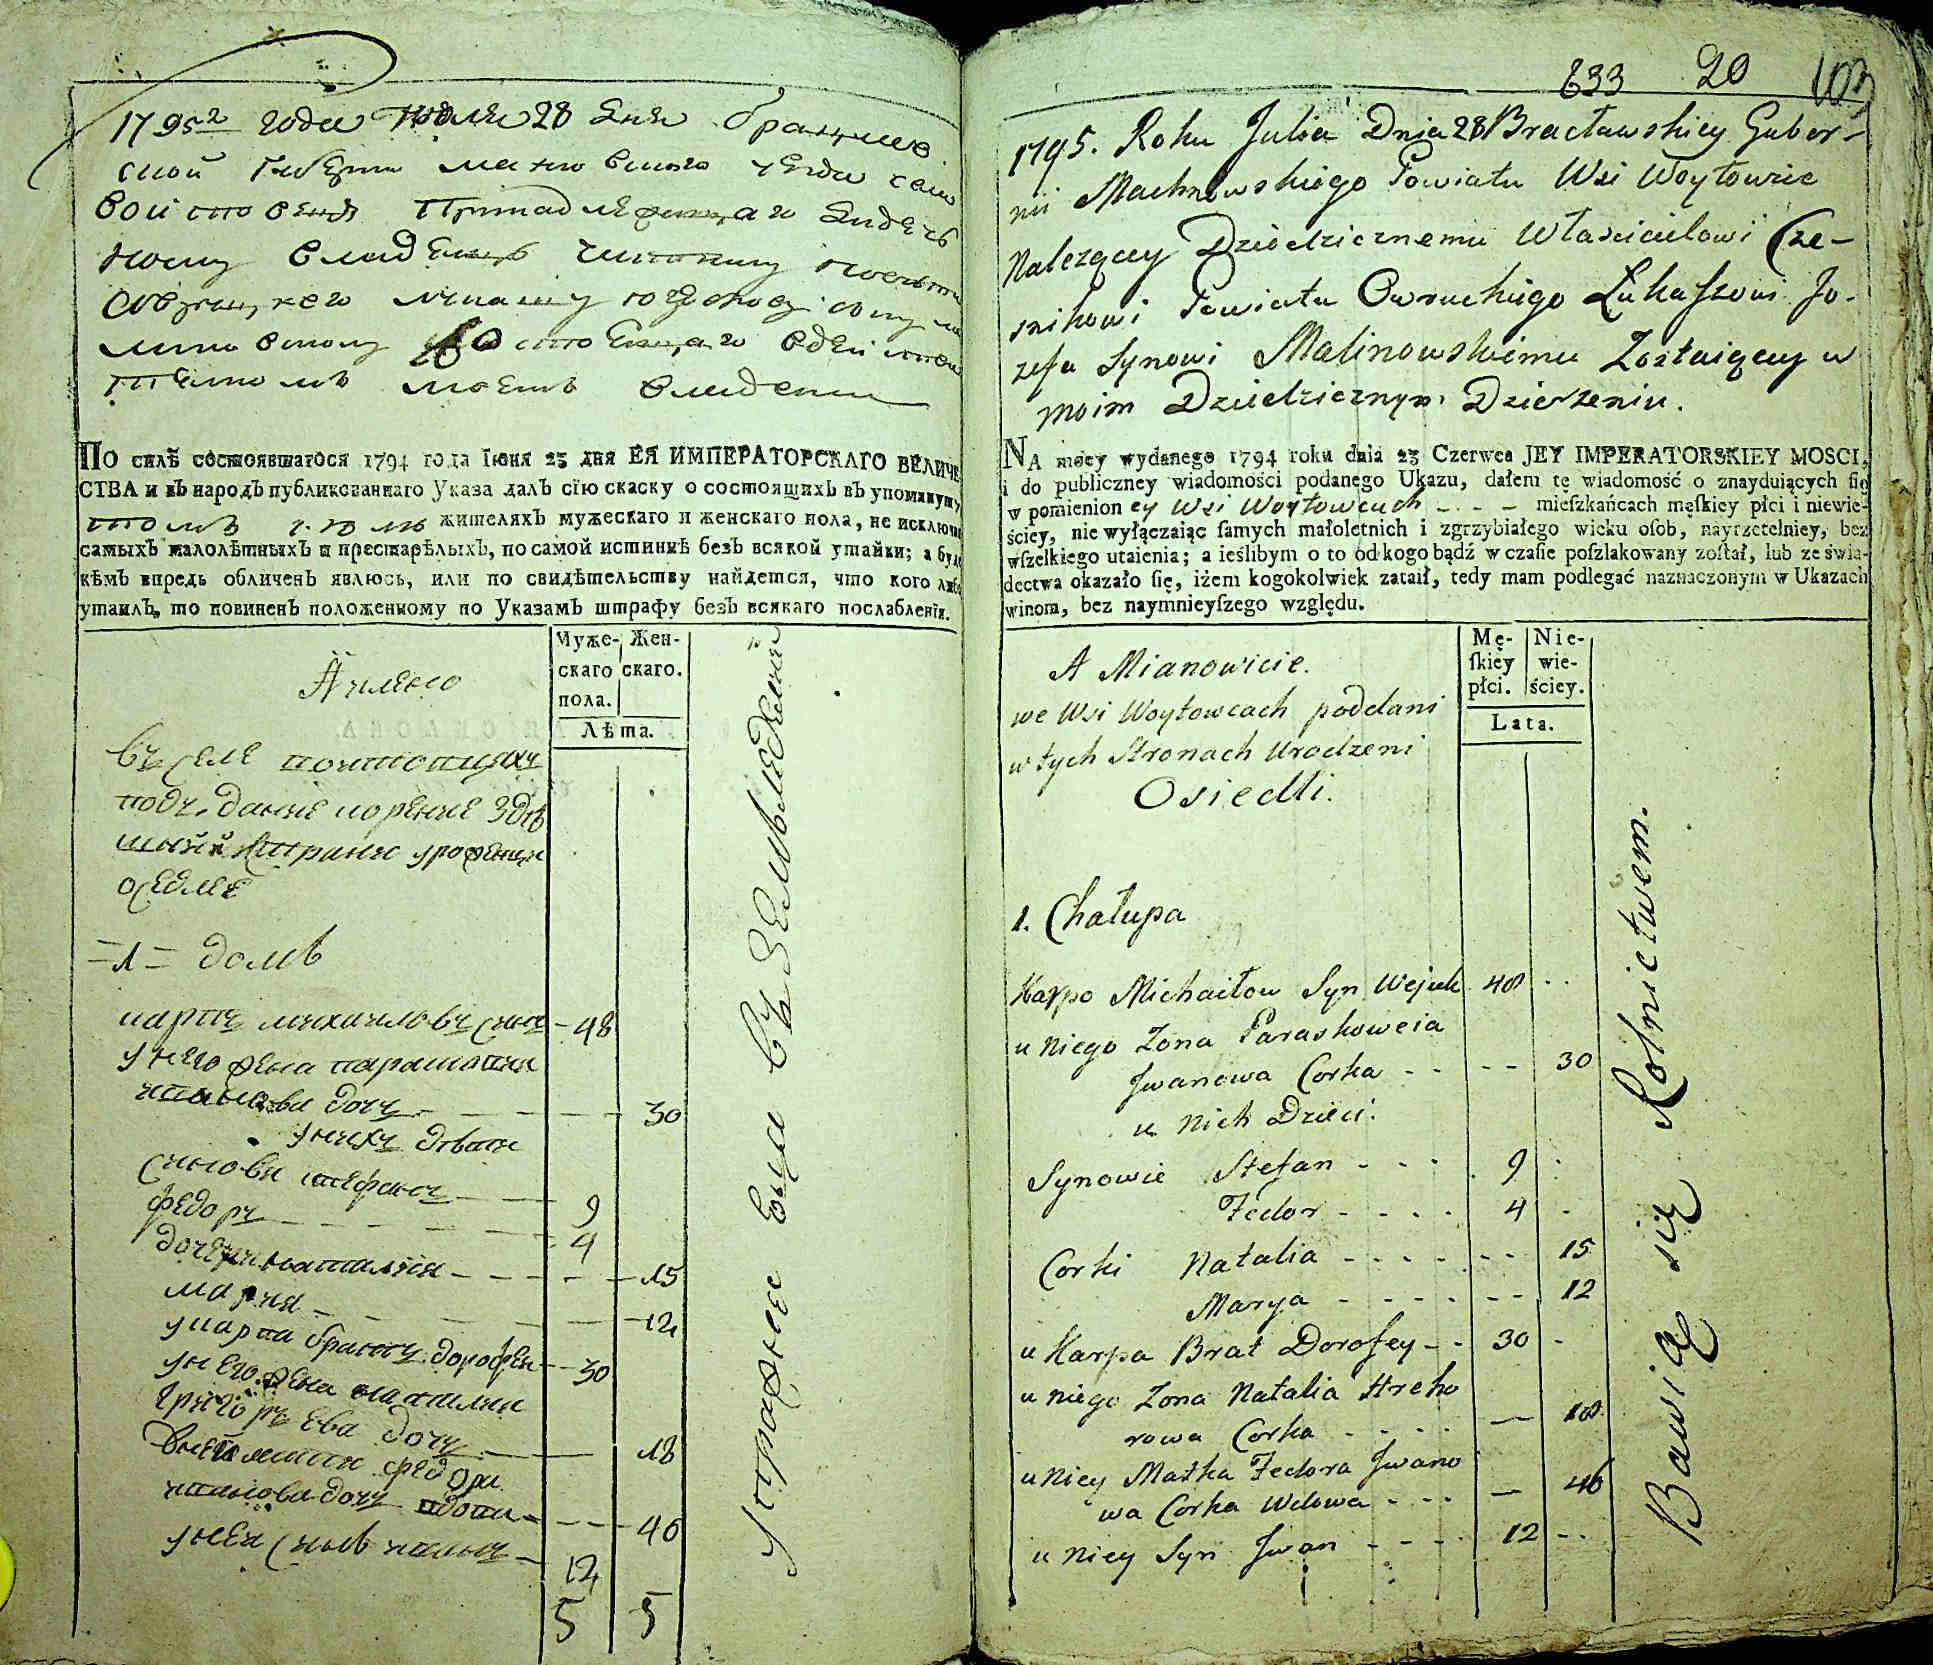 1795 года Июля 28 дня Брацлав
ской Губерни махновского уезда села
Войтовець Принадлежащаго
владельцу
сыну ма
линовскому состоящаго
моемъ владении
По силѣ состоявшагося 1794 года Iюня 23 дня ЕЯ ИМПЕРАТОРСКАГО ВЕЛИЧЕ
СТВА и въ народъ публикованнаго Указа далъ сїю скаску о состоящихъ въ упомянуту
томъ жителяхъ мужескаго и женскаго пола, не исключая
самыхъ малолѣтныхъ и престарѣлыхъ, по самой истиннѣ безъ всякой утайки; а буде
кѣмъ впредь обличенъ явлюсь, или по свидѣтельству найдется, что кого либо
утаилъ, то повиненъ положенному по Указамъ штрафу безъ всякаго послабленїя.
Муже- Жен-
скаго скаго.
пола.
Лѣта.
Аимено
въ селе
подъдание
урожены
оседлее
=1= домъ
карпъ михаиловъ синъ - 48
у него жена параскепия
иванова дочъ - - - 30
у нихъ дѣти
синовя стефанъ - - 9
федоръ - - - 4
дочери наталия - - - 15
мария - - - 12
у карпа братъ дорофеи - 30
у него жена наталия
григорьева дочъ - - 18
у неи мати федора
иванова дочъ вдова - - - 46
у неи синъ иванъ - 12
5 5
упражняеца въ земледелии
633 20 103
1795. Roku Julia Dnia 28 Bracławskiey Guber-
nii Machnowskiego Powiatu Wsi Woytowiec
Należącey Dziedzicznemu Własicielowi Cze-
snikowi Powiatu Owruckiego Łukaszowi Jo-
zefa Synowi Malinowskiemu Zostaiącey w
moim Dziedzicznym Dzierzeniu.
NA mocy wydanego 1794 roku dnia 23 Czerwca JEY IMPERATORSKIEY MOSCI,
i do publiczney wiadomości podanego Ukazu, dałem tę wiadomość o znayduiących ſię
w pomienioney Wsi Woytowcach - - - mieſzkańcach męſkiey płci i niewie-
ściey, nie wyłączaiąc ſamych małoletnich i zgrzybiałego wieku oſob, nayrzetelniey, bez
wſzelkiego utaienia; a ieślibym o to od kogo bądź w czaſie poſzlakowany zoſtał, lub ze świa-
dectwa okazało ſię, iżem kogokolwiek zataił, tedy mam podlegać naznaczonym w Ukazach
winom, bez naymnieyſzego względu.
Mę- Nie-
ſkiey wie-
płci. ściey.
Lata.
A Mianowicie.
we Wsi Woytowcach poddani
w tych Stronach Urodzeni
Osiedli.
1. Chałupa
Karpo Michaiłow Syn Wejuk 48 - -
u Niego Zona Paraskoweia
Jwanowa Corka - - - - 30
u Nich Dzieci:
Synowie Stefan - - - 9 -
Fedor - - - - 4 -
Corki Natalia - - - - - - 15
Marya - - - - - - - 12
u Karpa Brat Dorofey - - 30 -
u niego Zona Natalia Hreho
rowa Corka - - - - — 18
u Niey Matka Fedora Jwano
wa Corka Wdowa - - - — 46
u Niey Syn Jwan - - - - 12 - -
Bawią się Rolnictwem.